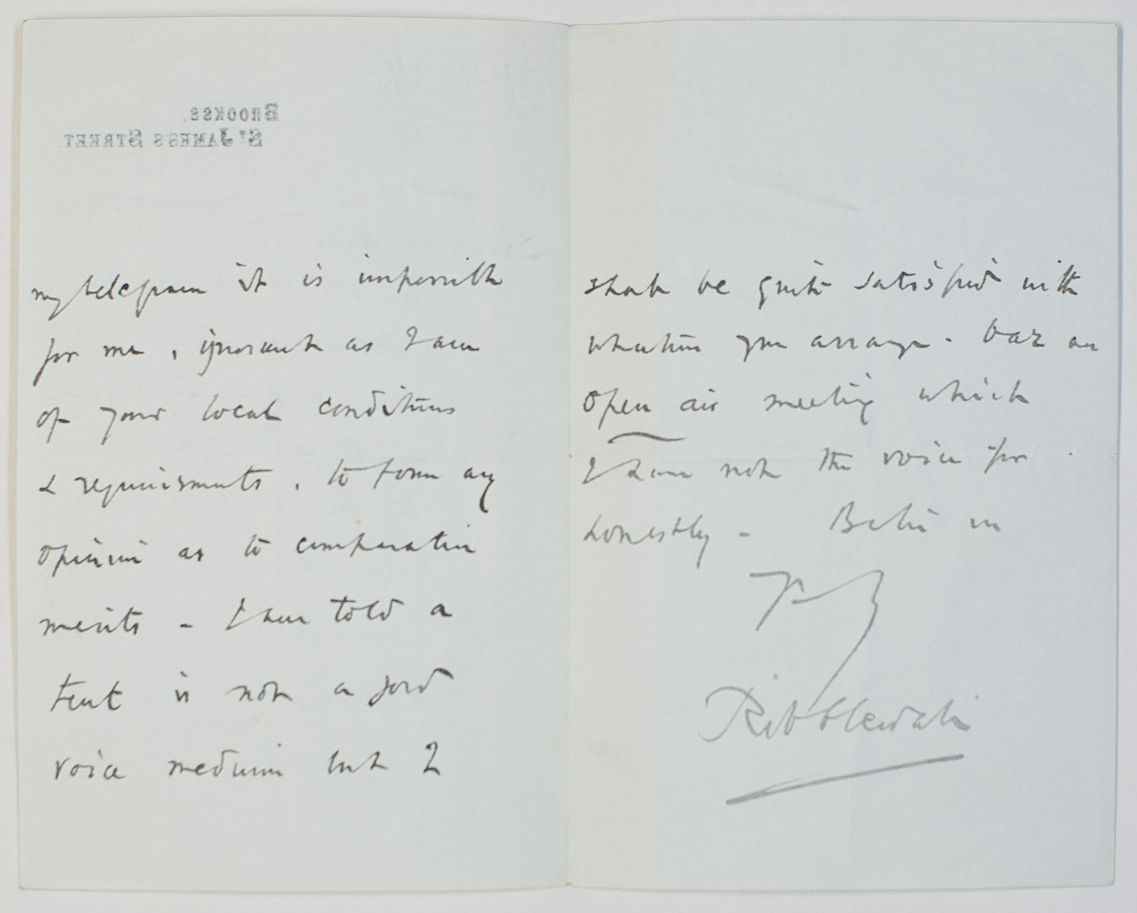 BROOKS'S.
ST JAMES'S STREET.
my telegram it is impossible
for me, ignorant as I am
of your local conditions
& requirements, to form any
opinion as to comparative
merits - I have told a
tent is not a good
voice medium but I
shall be quite satisfied with
whatever you arrange - bar an
open air meeting which
I have not the voice for
honestly - Believe me
Ribblesdale